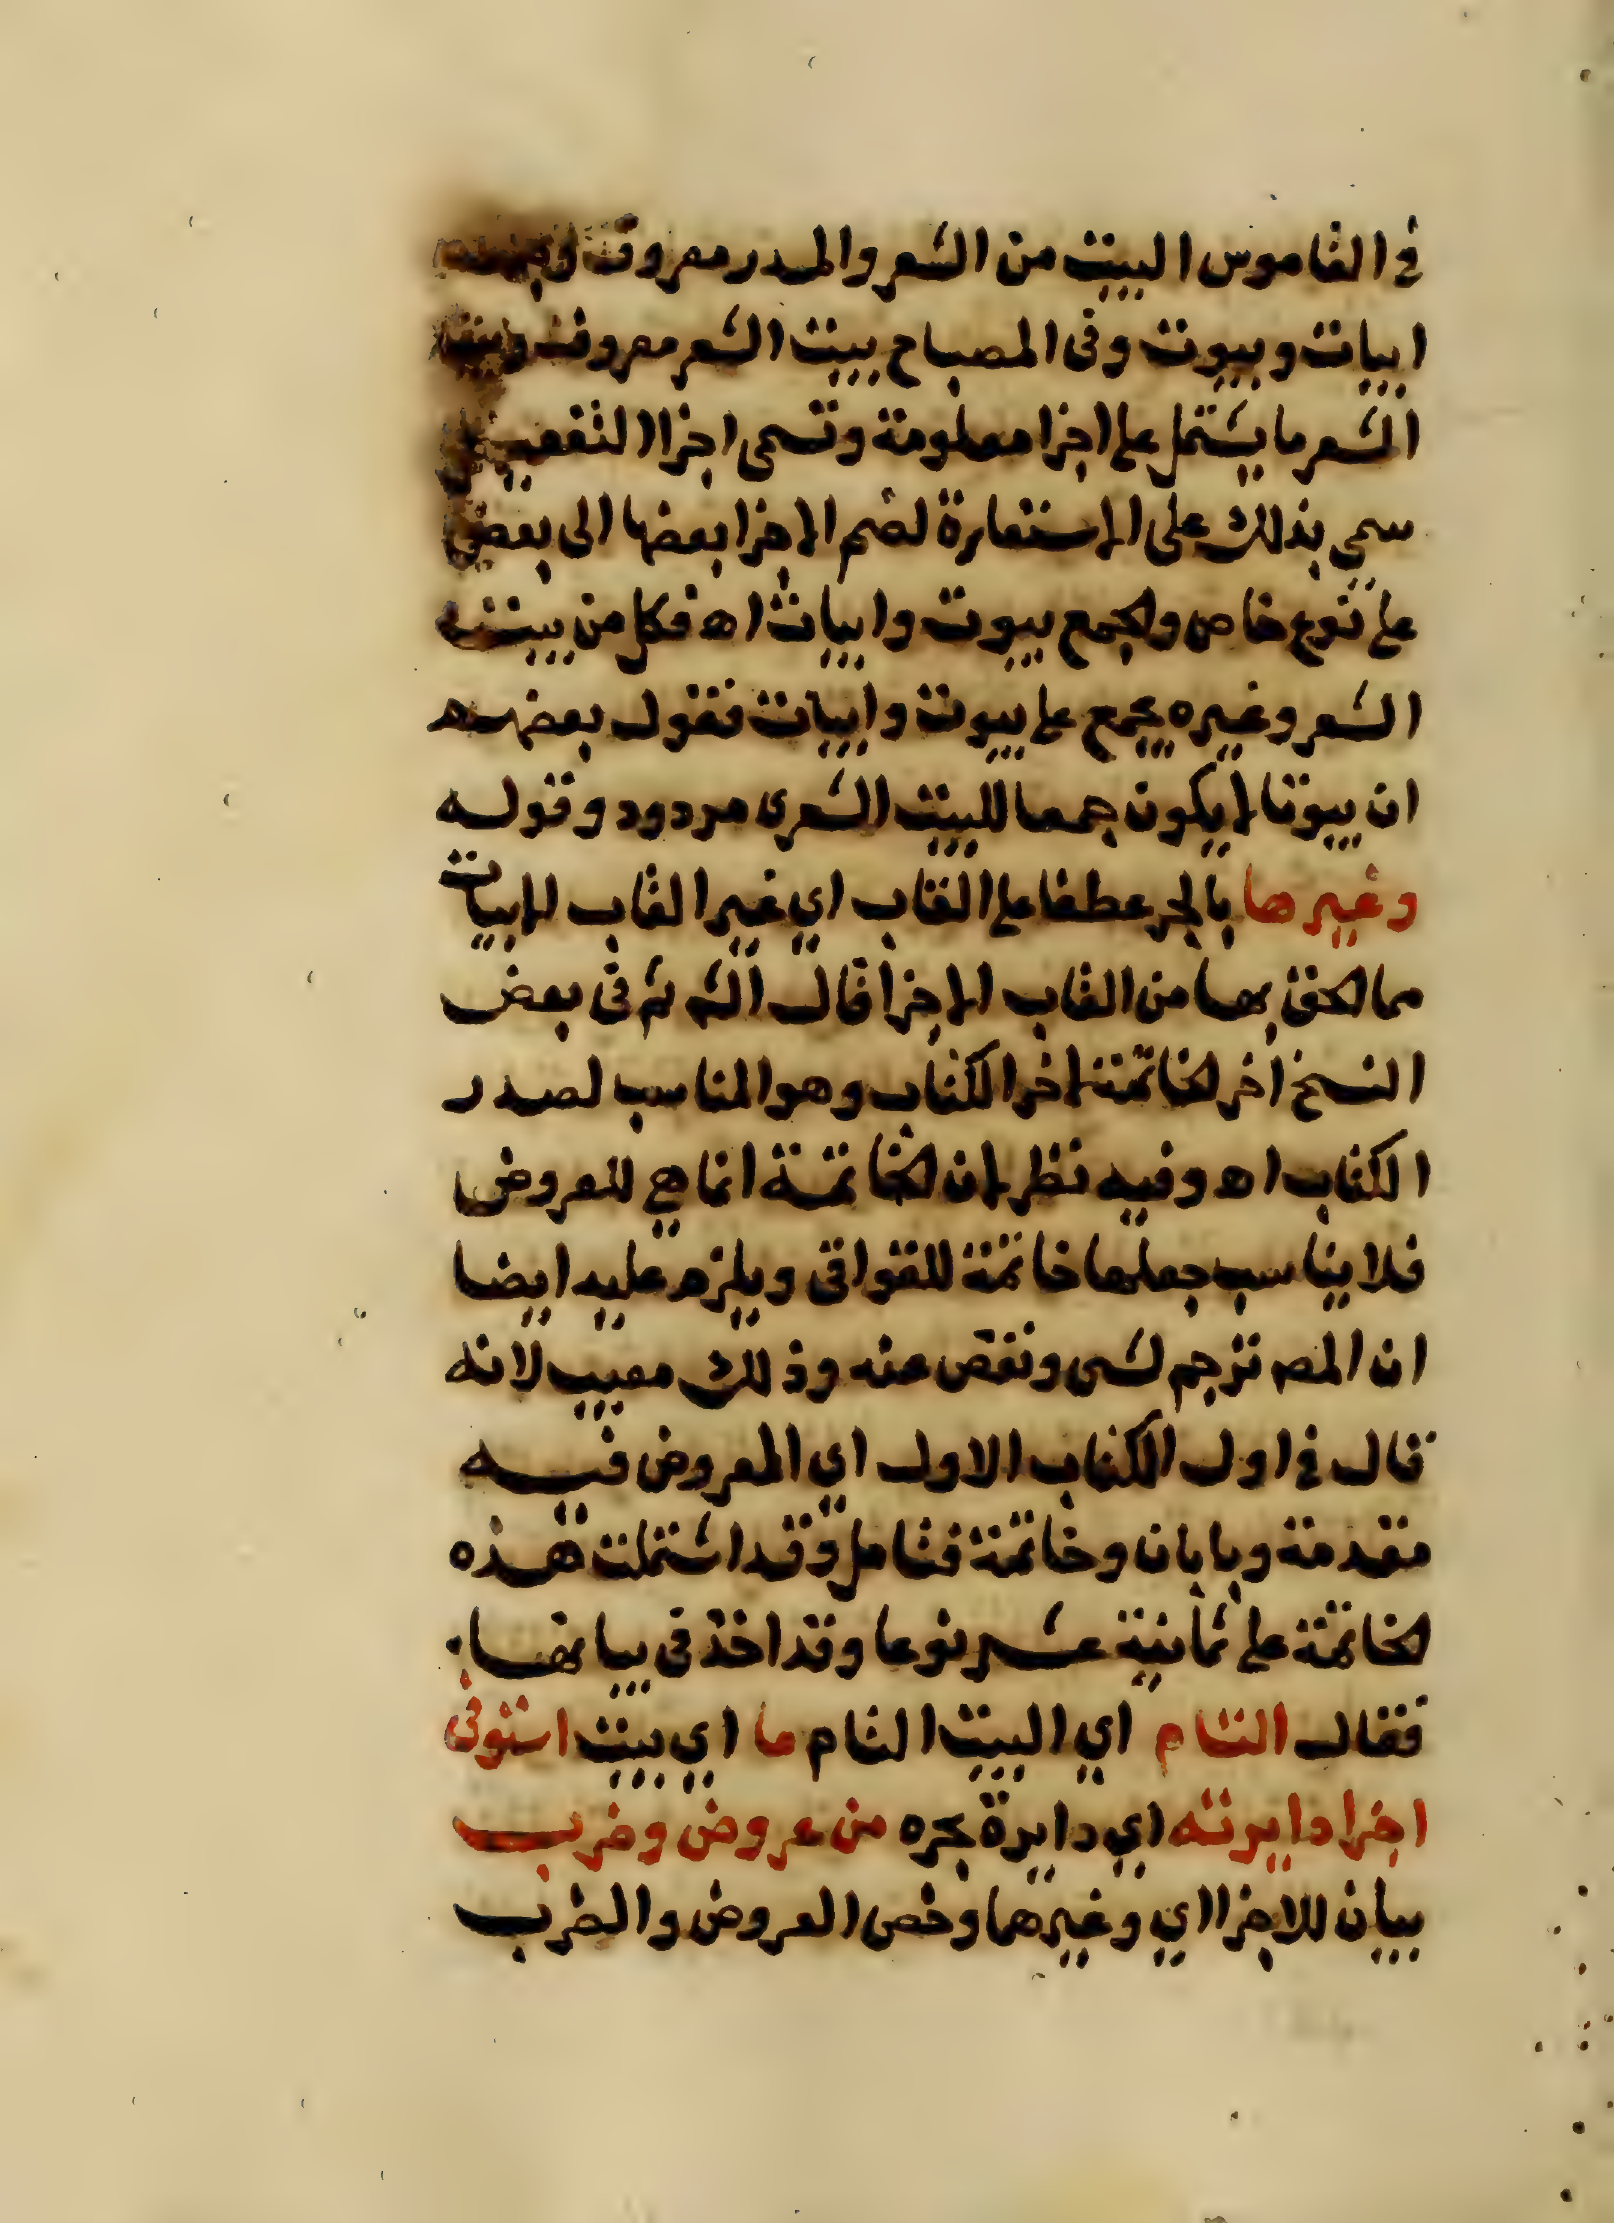 في القاموس البيت من الشعر والمدر معروف
ابيات وبيوت وفى المصباح بيت الشعر معروف وبيت
الشعر ما يشتمل على اجزا معلومة وتسمى اجزا التفعيل
سمي بذلك على الاستعارة لضم الاجزا بعضها الى بعض
على نوع خاص والجمع بيوت وابيات اه فكل من بيت
الشعر وغيره يجمع على بيوت وابيات فقول بعضهم
ان بيوتا لا يكون جمعا للبيت الشعرى مردود وقوله
وغيرها بالجر عطفا على القاب اي غير القاب للابيات
مما لحق بها من القاب الاجزا قال الش ثم فى بعض
النسخ اخر الخاتمة لاخر الكتاب وهو المناسب لصدر
الكتاب اه وفيه نظر لان الخاتمة انما هي للعروض
فلا يناسب جعلها خاتمة للقوافى ويلزم عليه ايضا
ان المص ترجم لشى ونقص عنه وذلك معيب لانه
قال في اول الكتاب الاول اي العروض فيه
مقدمة وبابان وخاتمة فتامل وقد اشتملت هذه
الخاتمة على ثمانية عشر نوعا وقد اخذ فى بيانها
فقال التام اي البيت التام ما اي بيت استوفى
اجزا دايرته اي دايرة بحره من عروض وضرب
بيان للاجزا اي وغيرهما وخص العروض والضرب